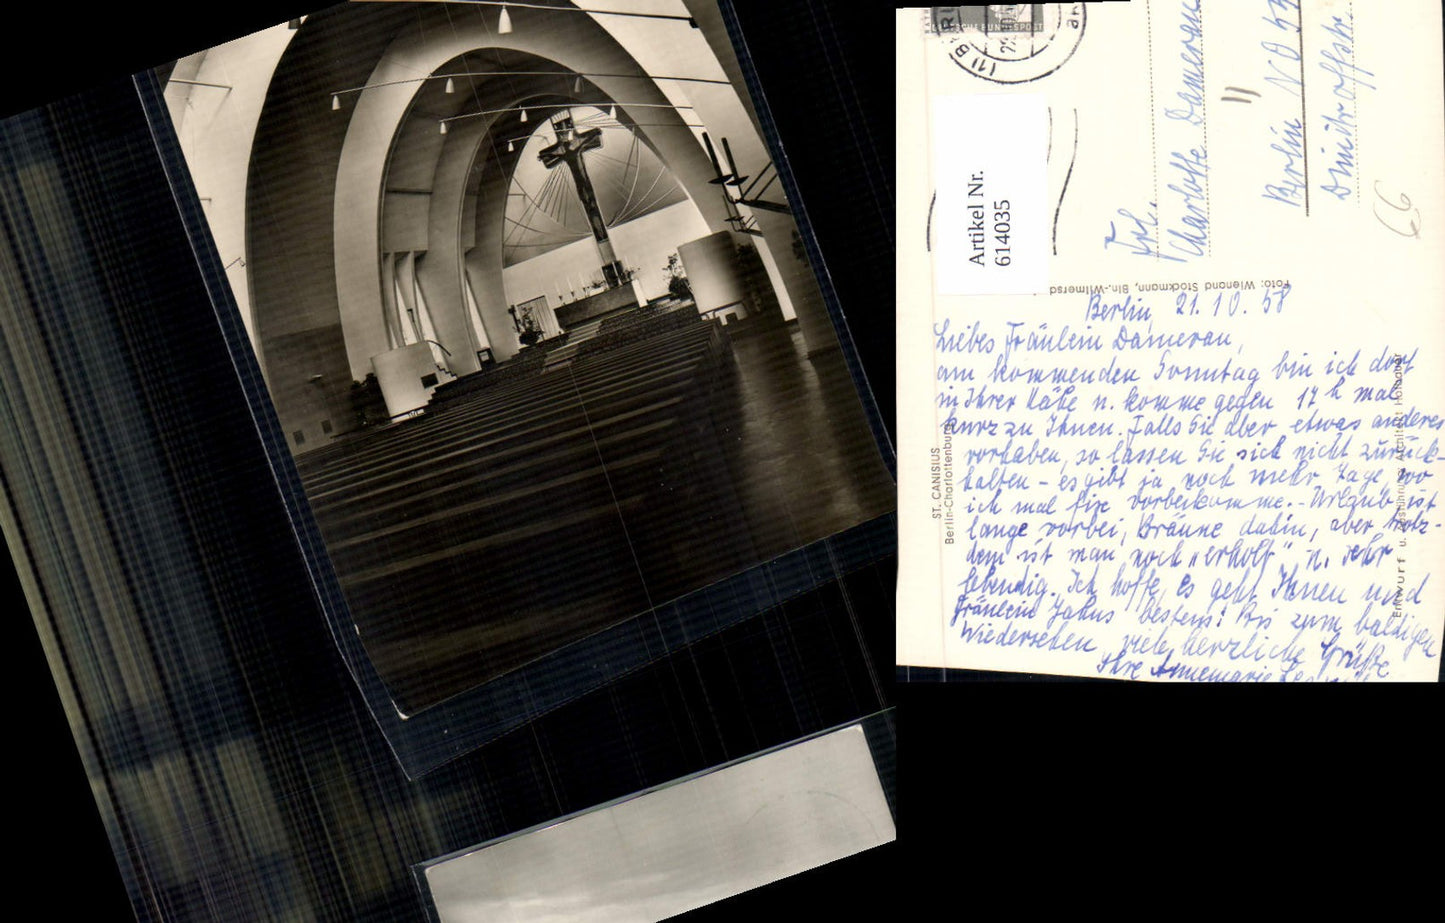 DEUTSCHE BUNDESPOST
(1) BERLIN
Artikel Nr.
614035
Frl.
Charlotte Damerau
Berlin NO 55
Dimitroffstr.
11
66
Foto: Wienand Stockmann, Bln.-Wilmersd
ST. CANISIUS
Berlin-Charlottenburg
Entwurf u. Ausführung: Architekt Hofbauer
Berlin, 21.10.58
Liebes Fräulein Damerau,
am kommenden Sonntag bin ich dort
in Ihrer Nähe u. komme gegen 17 h mal
kurz zu Ihnen. Falls Sie aber etwas anderes
vorhaben, so lassen Sie sich nicht zurück-
halten - es gibt ja noch mehr Tage, wo
ich mal fix vorbeikomme. - Urlaub ist
lange vorbei, Bräune dahin, aber trotz-
dem ist man noch „erholt" u. sehr
lebendig. Ich hoffe, es geht Ihnen und
Fräulein Jahns bestens! Bis zum baldigen
Wiedersehen viele herzliche Grüße
Ihre Annemarie